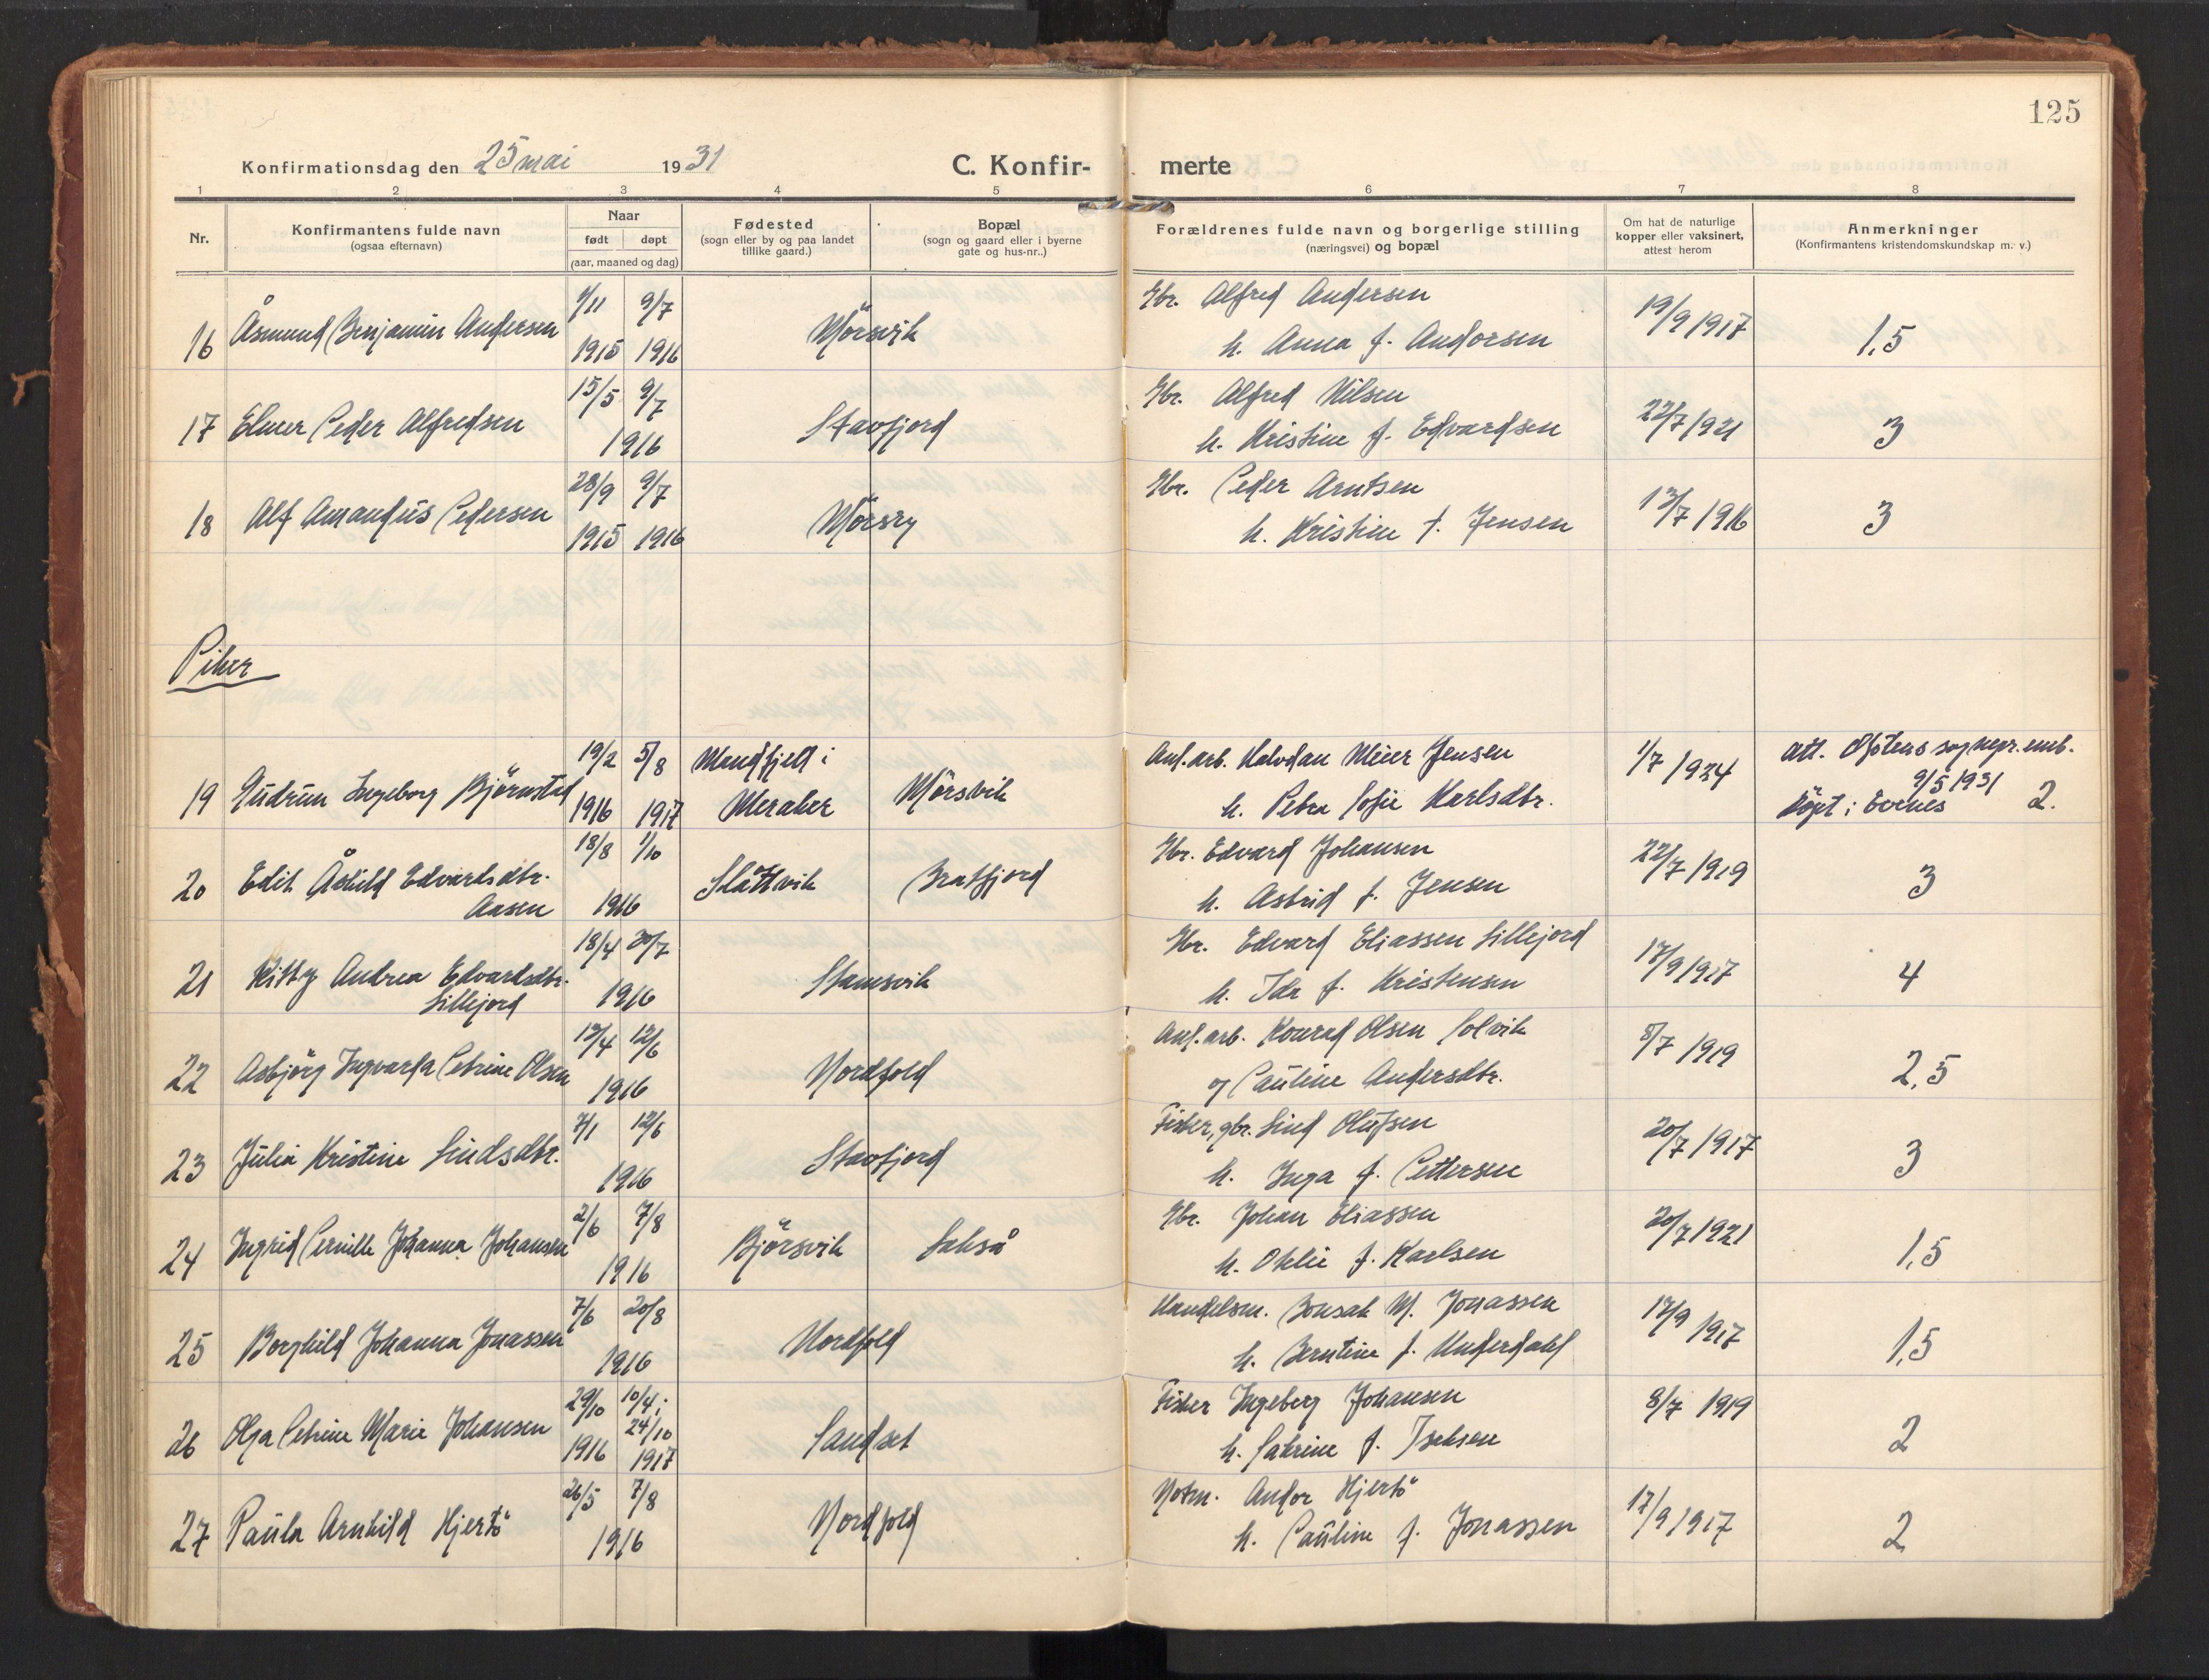 125
Konfirmationsdag den 25 mai 1931
C. Konfir- merte
1 2 3 4 5 6 7 8
Nr.
Konfirmantens fulde navn
(ogsaa efternavn)
Naar
født døpt
(aar, maaned og dag)
Fødested
(sogn eller by og paa landet
tillike gaard.)
Bopæl
(sogn og gaard eller i byerne
gate og hus-nr..)
Forældrenes fulde navn og borgerlige stilling
(næringsvei) og bopæl
Om hat de naturlige
kopper eller vaksinert,
attest herom
Anmerkninger
(Konfirmantens kristendomskundskap m. v.)
16 Åsmund Benjamin Andersen 9/7 1915 1916 Mörsvik Gbr. Alfred Andersen 19/9 1917 1,5
h. Anna f. Andorsen
17 Elmer Peder Alfredsen 15/5 9/7 1916 Stavfjord Gbr. Alfred Nilsen 22/7 1921 3
h. Kristine f. Edvardsen
18 Alf Amandus Pedersen 28/9 9/7 1915 1916 Mörsry Gbr. Peder Arntsen 13/7 1916 3
h. Kristine f. Jensen
Piker
19 Gudrun Ingeborg Björnstad 19/2 5/8 1916 1917 Mandfjell i Meraker Mörsvik Anl. arb. Halvdan Meier Jensen 1/7 1924 att. Ofotens sognepr. emb.
h. Petra Sofie Karlsdtr. 9/5 1931
döpt i Evenes 2.
20 Edit Åshild Edvardsdtr. 18/8 1/10 1916 Slåttvik Bratfjord Gbr. Edvard Johansen 22/7 1919 3
Aasen h. Astrid f. Jensen
21 Kitty Andrea Edvardsdtr. 18/4 30/7 1916 Stamsvik Gbr. Edvard Eliassen Lillejord 17/9 1917 4
Lillejord h. Ida f. Kristensen
22 Asbjörg Ingvarda Petrine Olsen 13/4 12/6 1916 Nordfold Anl. arb. Konrad Olsen Solvik 8/7 1919 2,5
og Pauline Andersdtr.
23 Julia Kristine Lindsdtr. 7/1 12/6 1916 Stavfjord Fisker, gbr. Lind Olufsen 20/7 1917 3
h. Inga f. Pettersen
24 Ingrid Pernille Johanna Johansen 2/6 7/8 1916 Björsvik Lakså Gbr. Johan Eliassen 20/7 1921 1,5
h. Otelie f. Karlsen
25 Borghild Johanna Jonassen 7/6 20/8 1916 Nordfold Handelsm. Bonsak M. Jonassen 17/9 1917 1,5
h. Berntine f. Underdahl
26 Olga Petrine Marie Johansen 29/10 10/4; 24/10 1916 1917 Sandset Fisker Ingeberg Johansen 8/7 1919 2
h. Katrine f. Isaksen
27 Paula Arnhild Hjertö 26/5 7/8 1916 Nordfold Notm. Andor Hjertö 17/9 1917 2
h. Pauline f. Jonassen